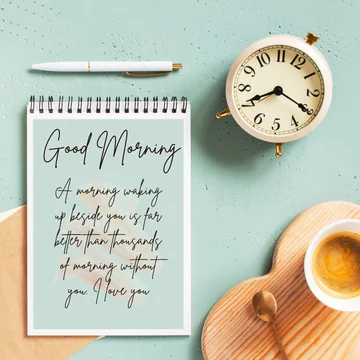 Good Morning
A morning waking
up beside you is far
better than thousands
of morning without
you. I love you
12
1
2
3
4
5
6
7
8
9
10
11